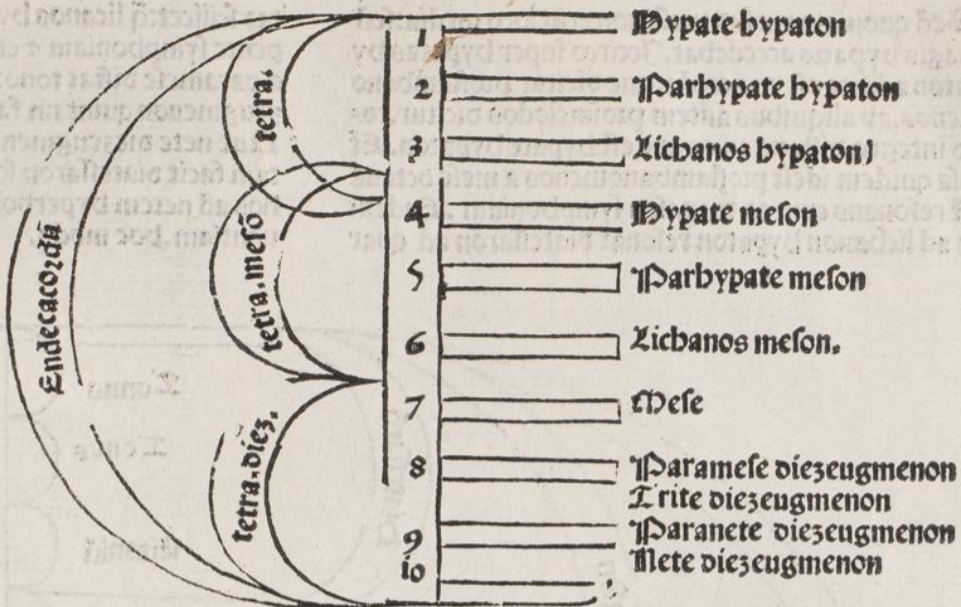 Endecacordū
tetra.
tetra.mesō
tetra.diez.
1 Hypate hypaton
2 Parhypate hypaton
3 Lichanos hypaton
4 Hypate meson
5 Parhypate meson
6 Lichanos meson.
7 Mese
8 Paramese diezeugmenon
Trite diezeugmenon
9 Paranete diezeugmenon
10 Nete diezeugmenon